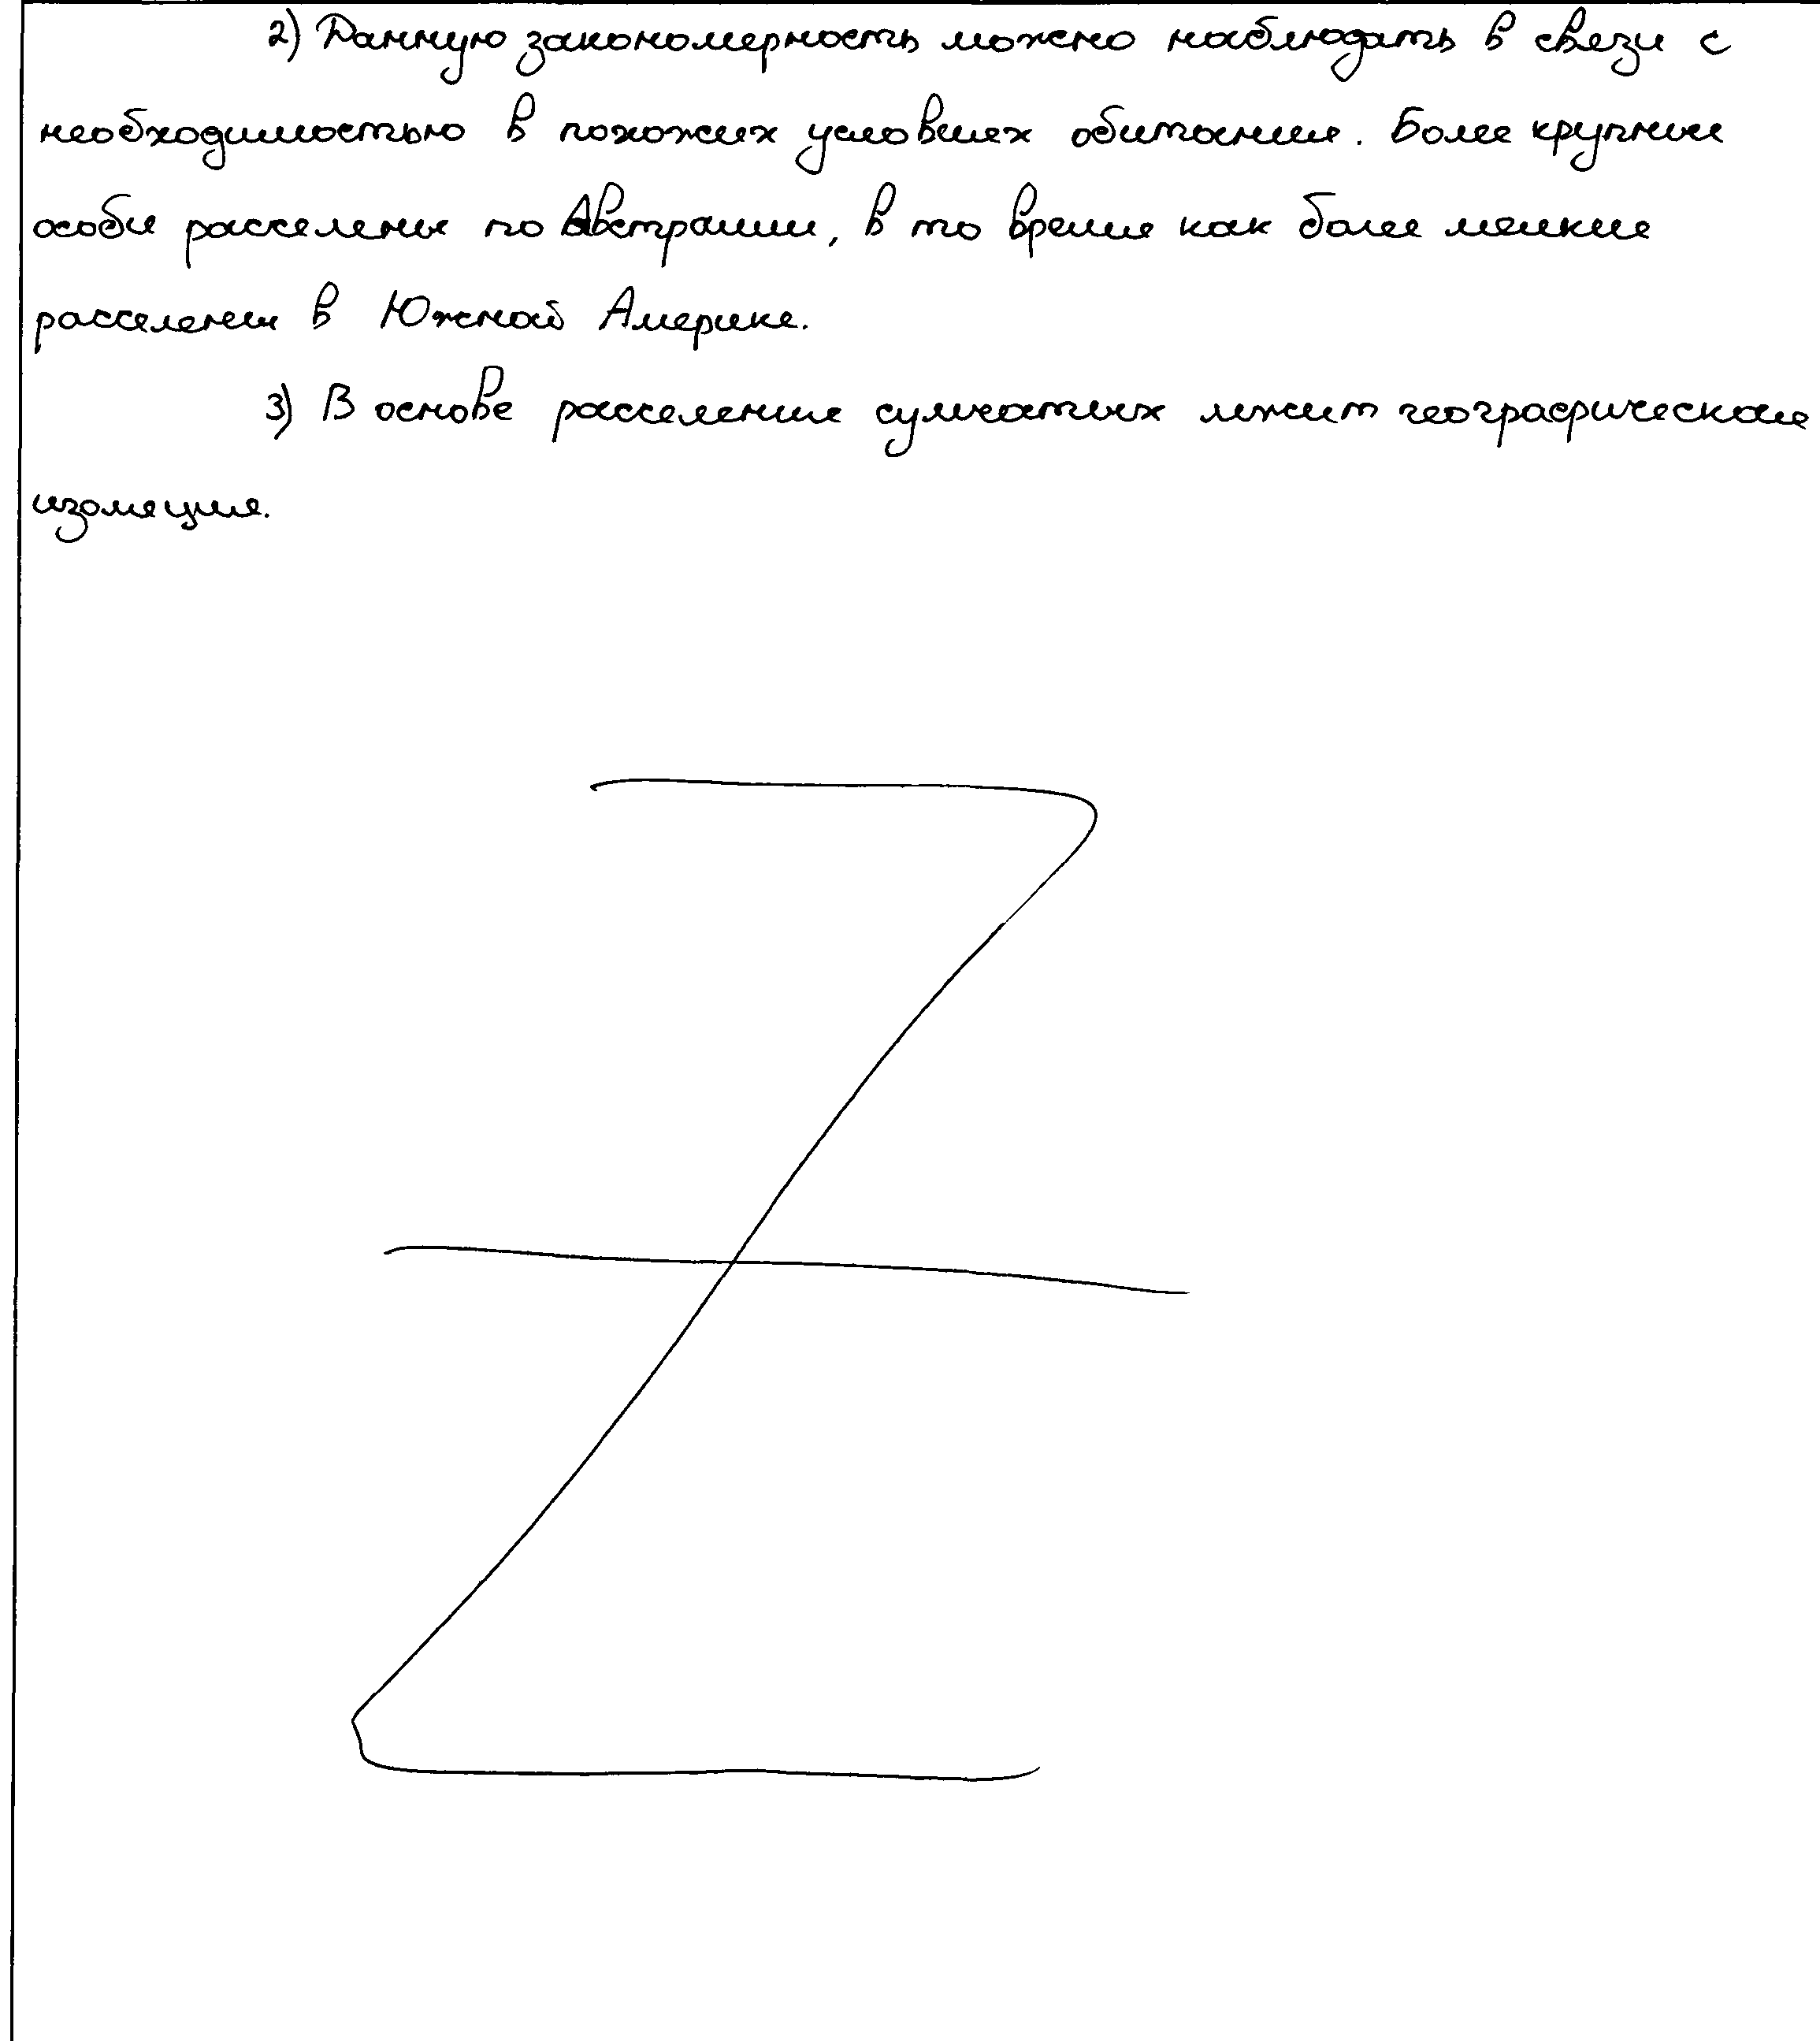 2) Данную закономерность можно наблюдать в связи с
необходимостью в похожих условиях обитания. Более крупные
особи расселены по Австралии, в то время как более мелкие
расселены в Южной Америке.
3) В основе расселения сумчатых лежит географическая
изоляция.